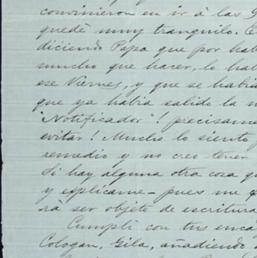 convinieron en ir á las G
quedé muy tranquilo. E
diciendo Pepa que por hab
mucho que hacer, lo hab
ese Viernes, y que se habia
que ya habia salido la n
"Notificador"! precisame
evitar! Mucho lo siento
remedio y no cres tener
Si hay alguna otra cosa qu
y esplicame - pues me q
rá ser objeto de escritura
Cumpli con tus enca
Cologan, Gila, añadiendo